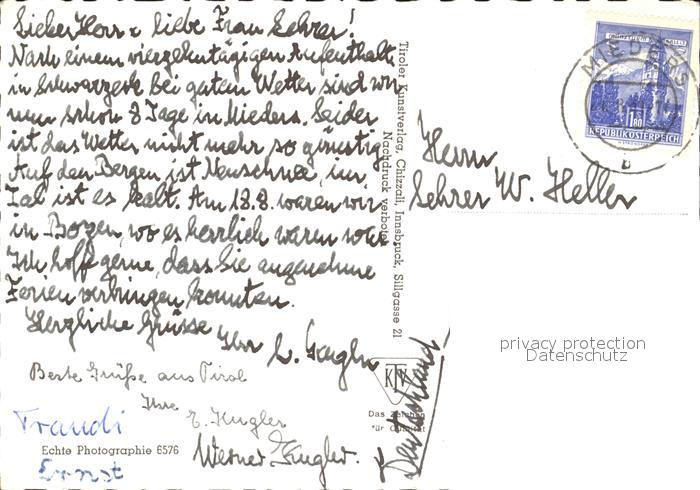 Lieber Herr u liebe Frau Lehrer!
Nach einem vierzehntägigen Aufenthalt
in Schwarzerk bei gutem Wetter sind wir
nun schon 8 Tage in Mieders. Leider
ist das Wetter nicht mehr so günstig.
Auf den Bergen ist Neuschnee, im
Tal ist es kalt. Am 18.8. waren wir
in Bozen, wo es herrlich warm war.
Ich hoffe gerne, dass Sie angenehme
Ferien verbringen konnten.
Herzliche Grüsse
Ihr
Beste Grüße aus Tirol
Ihre E. Kugler
Traudi
Werner Kugler.
Echte Photographie 6576
Ernst
Tiroler Kunstverlag, Chizzali, Innsbruck, Sillgasse 21
Nachdruck verboten
KTV
Das Zeichen
für Qualität
MIEDERS
b
1.80
REPUBLIK ÖSTERREICH
Herrn
Lehrer W. Heller
Deutschland
privacy protection
Datenschutz